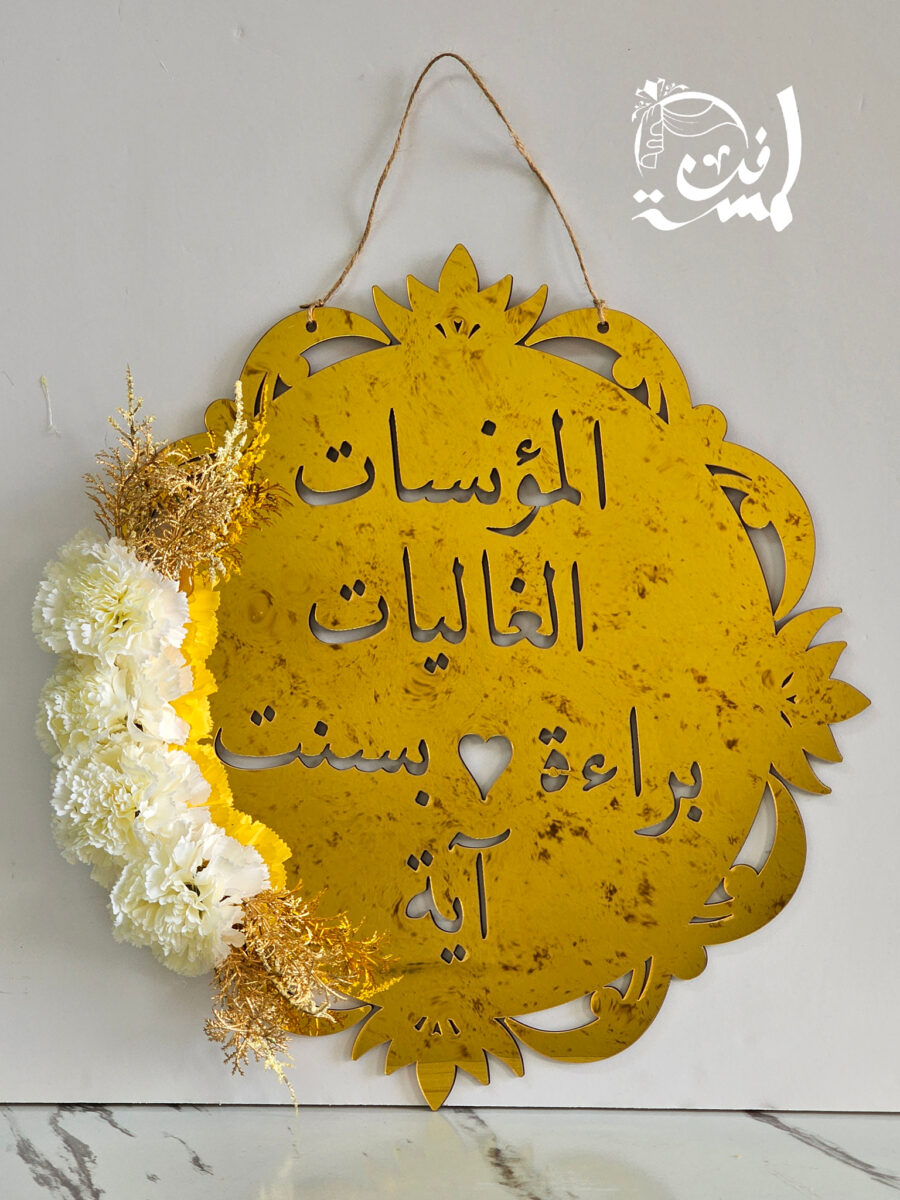 لمسة فن
المؤنسات
الغاليات
براءة ♥ بسنت
آية